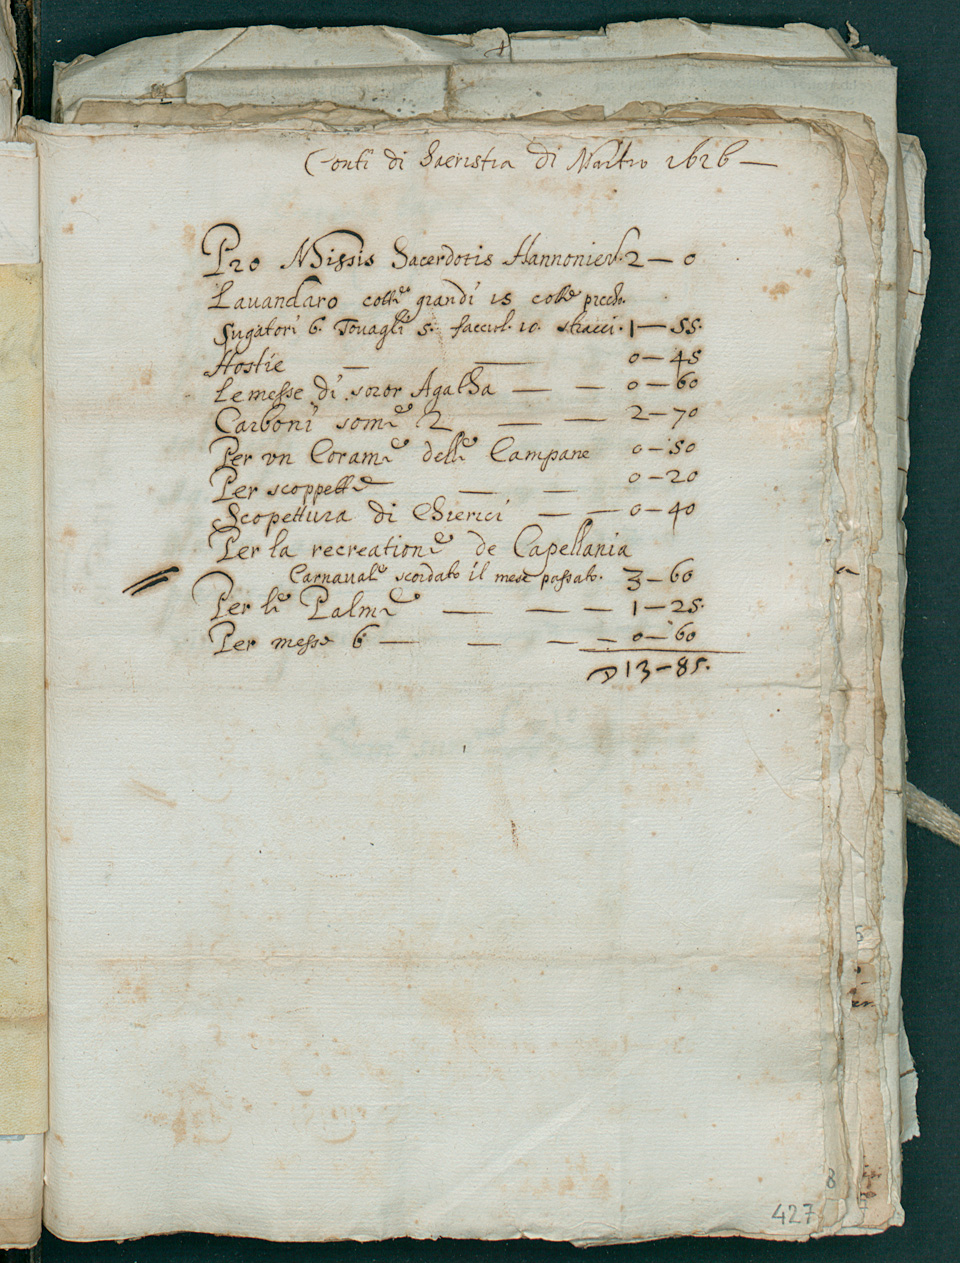 Conti di Sacristia di Martio 1626 —
Pro Missis Sacerdotis Hannoniex. 2 — 0
Lavandaro cotte grandi 15 cotte picch.
Sugatori 6. Tovagli 5. facciol. 10. stracci. 1 — 55.
Hostie — — 0 — 45
Le messe di soror Agatha — — 0 — 60
Carboni some 2 — — 2 — 70
Per un Corame delle Campane 0 — 50
Per scoppette — — 0 — 20
Scopettura di Chierici — — 0 — 40
Per la recreatione de Capellania
Carnavale scordato il mese passato. 3 — 60
Per le Palme — — — 1 — 25.
Per messe 6 — — — — 0 — 60
13 — 85.
427
8